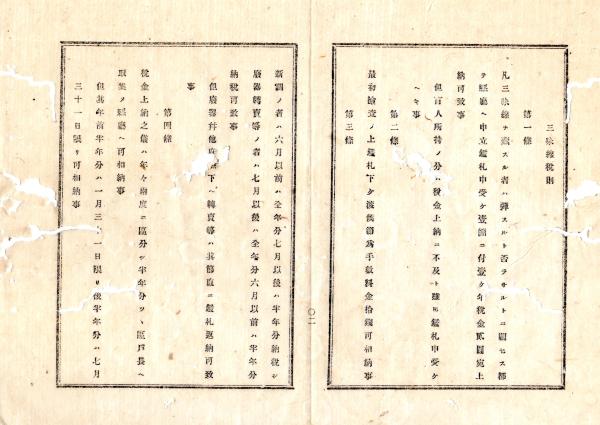 三味線税則
第一條
凡三味線ヲ蓄スル者ハ彈スルト否ラサルトニ關セス都
テ縣廳ヘ申立鑑札申受ケ壹調ニ付壹ケ年税金貳圓宛上
納可致事
但盲人所持ノ分ハ税金上納ニ不及ト雖𪜈鑑札申受ケ
ヘキ事
第二條
最初檢査ノ上鑑札下ケ渡候節爲手數料金拾錢可相納事
第三條
新調ノ者ハ六月以前ハ全年分七月以後ハ半年分納税シ
廢器轉賣等ノ者ハ七月以後ハ全年分六月以前ハ半年分
納税可致事
但廢器幷他 下ヘ轉賣等ハ其節直ニ鑑札返納可致
事
第四條
税金上納之儀ハ年々兩度ニ區分シ半年分ツヽ區戸長ヘ
取集メ縣廳ヘ可相納事
但其年前半年分ハ一月三 一日限リ後半年分ハ七月
三十一日限リ可相納事
〇二